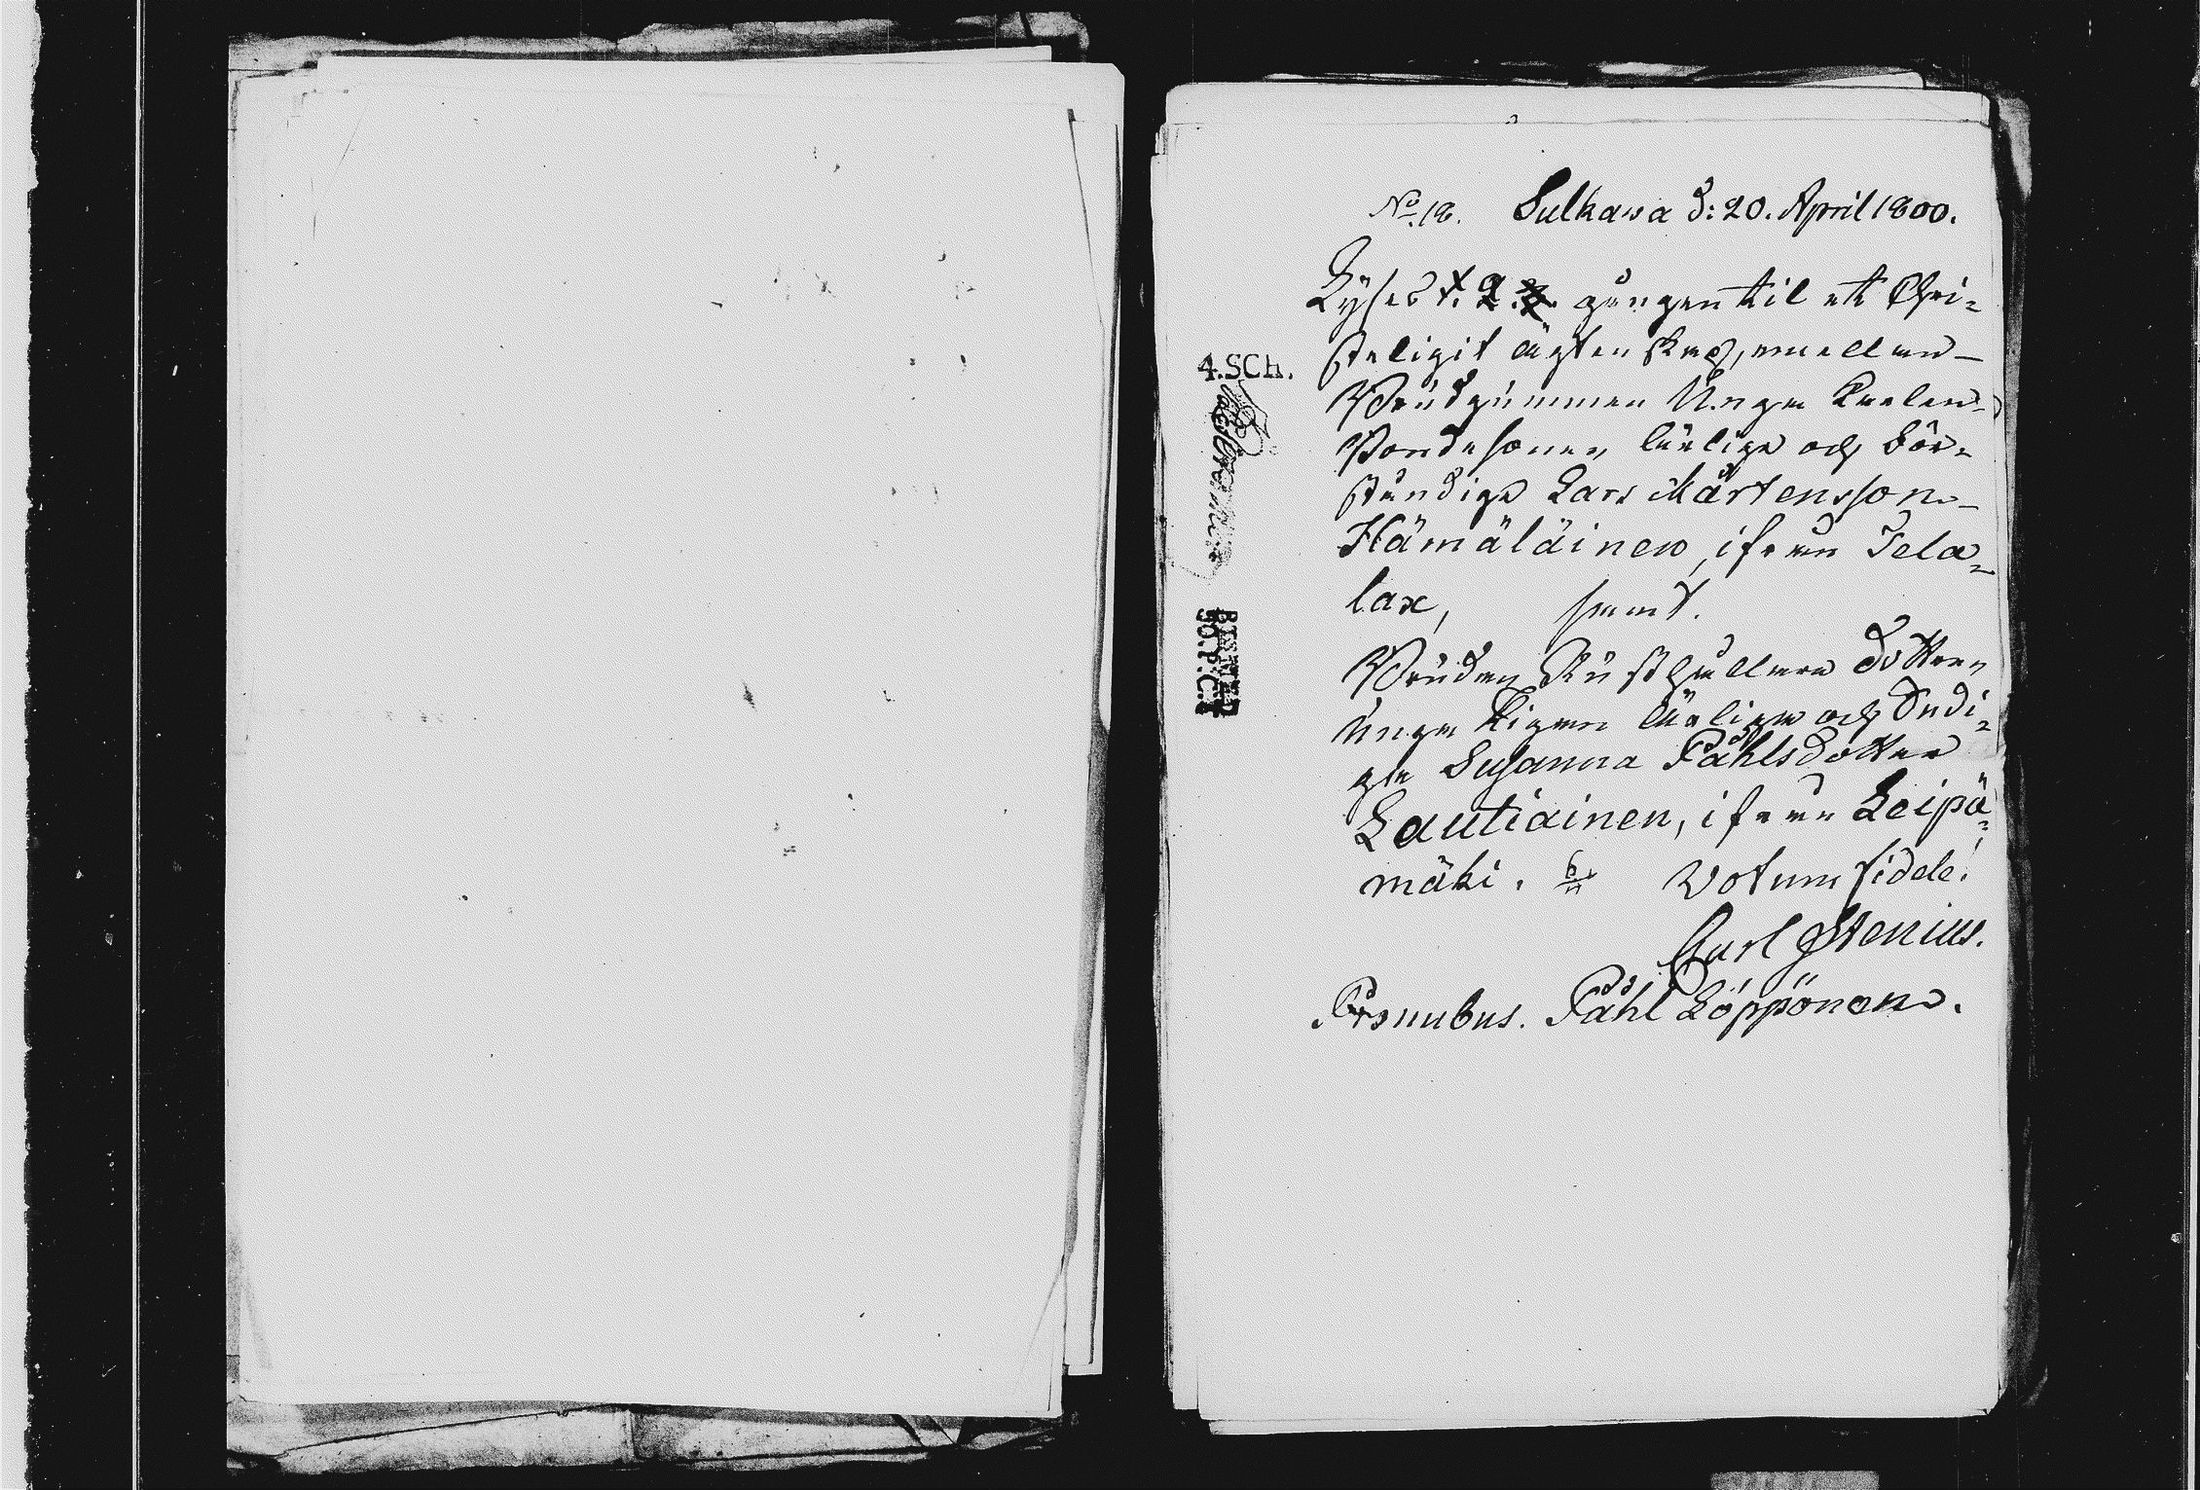 No 18. Sulkawa d: 20. April 1800.
Lyses 1. 2. 3. gången til et Chri=
steligit ägtenskap, emellan
Brudgummen Unge Karlen
Bondesonen ärlige och bör=
stundige Lars Mårtensson
Hämäläinen, ifrån Tela=
lax, samt
Bruden Rusthållare dottren
unga Pigan ärliga och Dydi=
ga Susanna Påhlsdotter
Lautiainen, ifrån Leipä=
mäki. Votum fidele!
Carl Stenius.
Pronubus. Påhl Löppönen.
4.SCH.